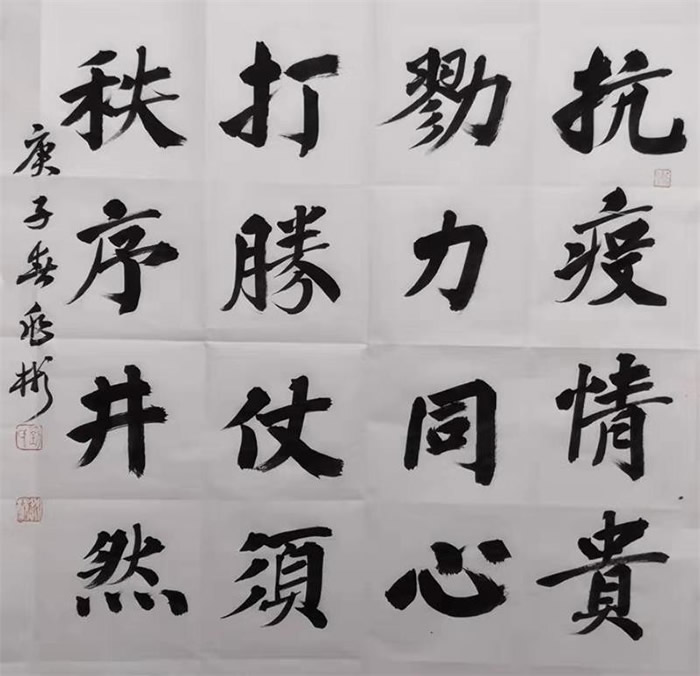 抗疫情貴
勠力同心
打勝仗須
秩序井然
庚子春兆彬